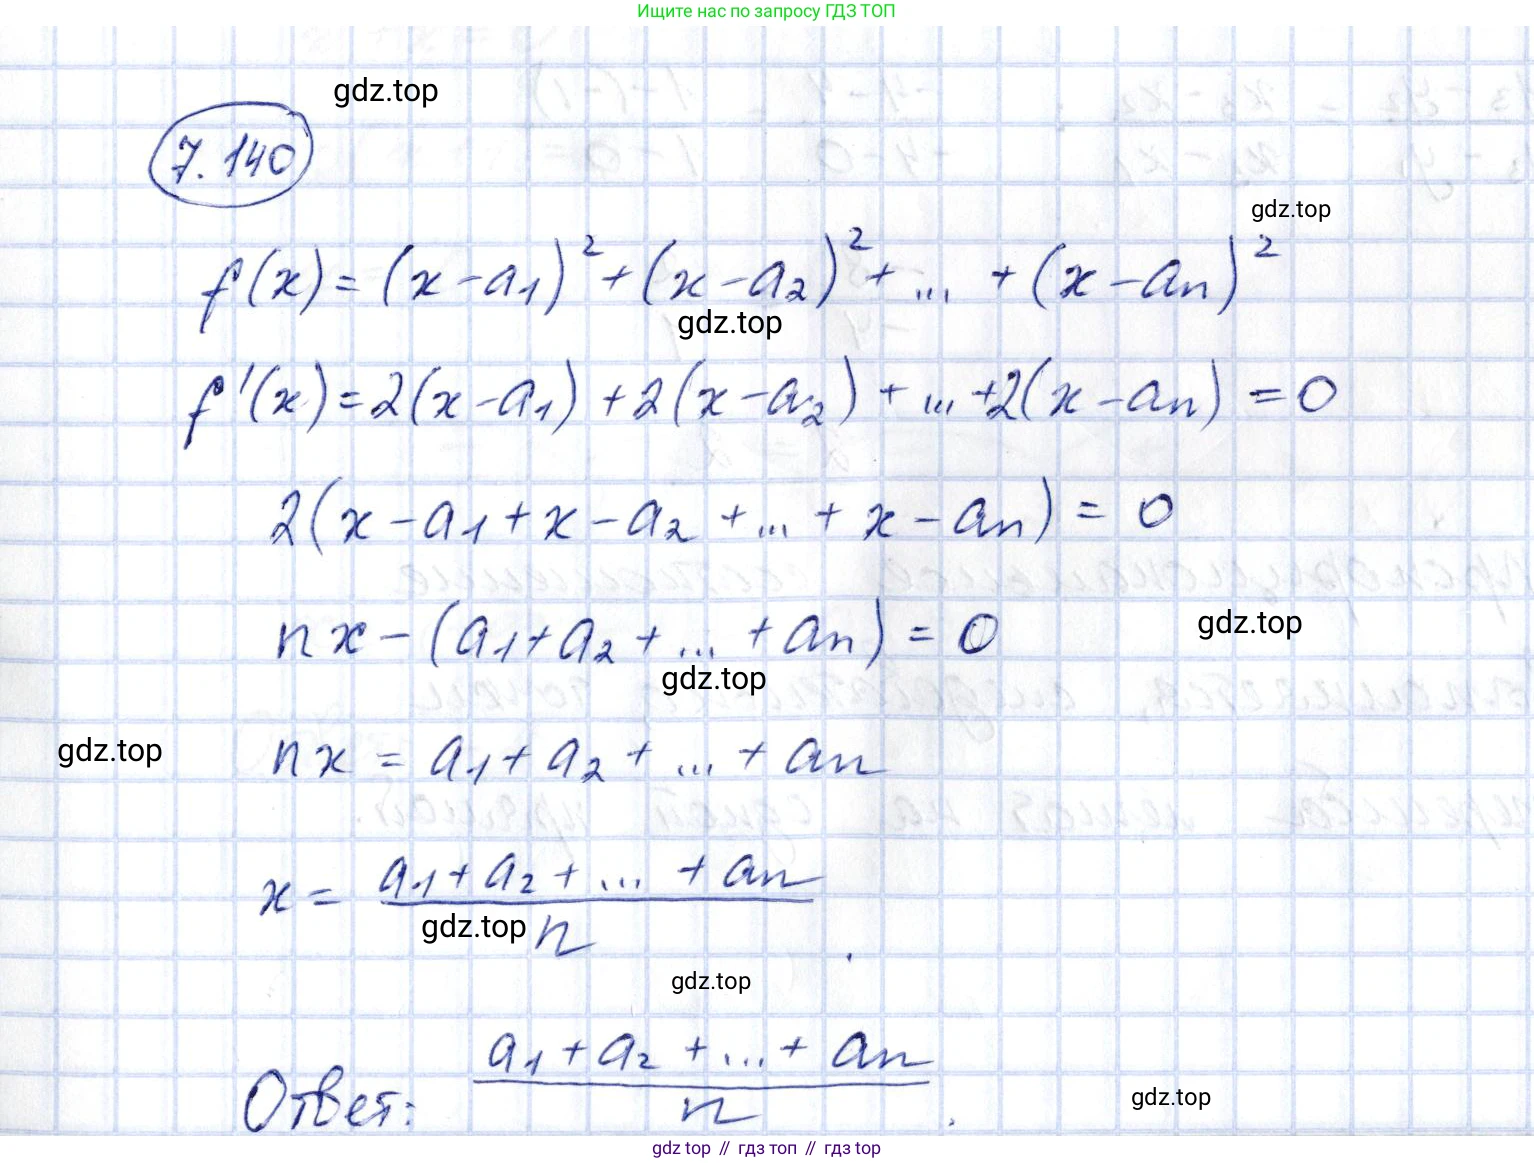 Ищите нас по запросу ГДЗ ТОП
gdz.top
7.140
gdz.top
f(x) = (x-a₁)² + (x-a₂)² + ... + (x-aₙ)²
gdz.top
f'(x) = 2(x-a₁) + 2(x-a₂) + ... + 2(x-aₙ) = 0
2(x-a₁+x-a₂+...+x-aₙ) = 0
nx-(a₁+a₂+...+aₙ) = 0
gdz.top
gdz.top
gdz.top
nx = a₁+a₂+...+aₙ
x = (a₁+a₂+...+aₙ)/n.
gdz.top
gdz.top
Ответ: (a₁+a₂+...+aₙ)/n.
gdz.top
gdz top // гдз топ // гдз top